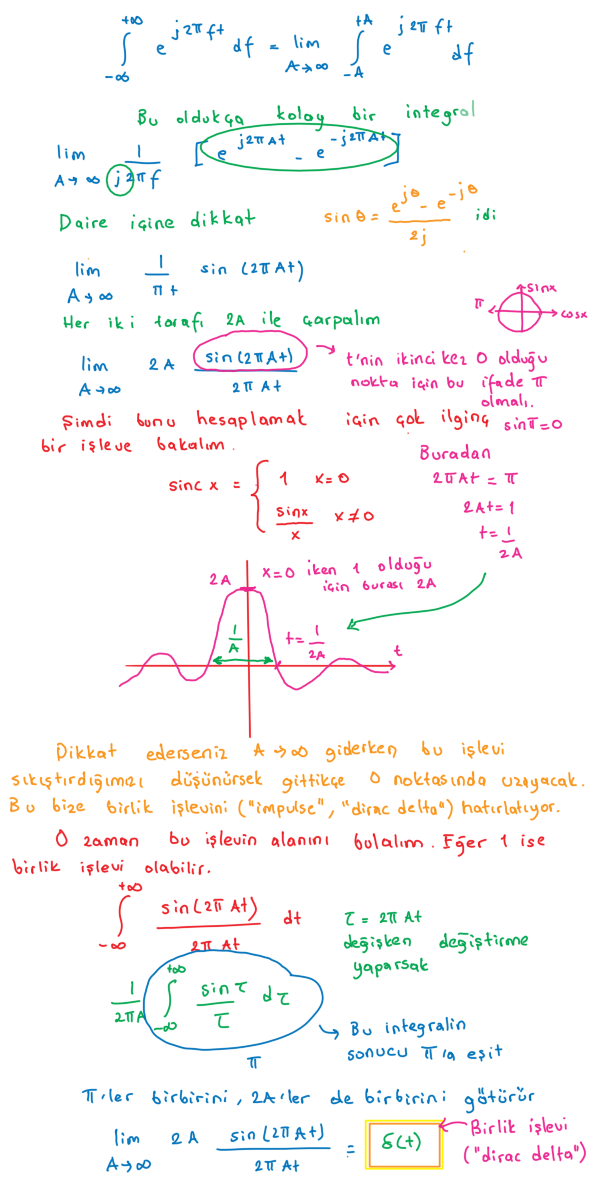 ∫_{-∞}^{+∞} e^{j2πft} df = lim_{A→∞} ∫_{-A}^{+A} e^{j2πft} df
Bu oldukça kolay bir integral
lim_{A→∞} 1/(j2πf) [e^{j2πAt} - e^{-j2πAt}]
Daire içine dikkat sinθ = (e^{jθ} - e^{-jθ})/2j idi
lim_{A→∞} 1/(πt) sin(2πAt)
π sinx cosx
Her iki tarafı 2A ile çarpalım
lim_{A→∞} 2A sin(2πAt)/(2πAt)
→ t'nin ikinci kez 0 olduğu
nokta için bu ifade π
olmalı.
sinπ=0
Şimdi bunu hesaplamak için çok ilginç
bir işleve bakalım.
sinc x = { 1 x=0
sinx/x x≠0
Buradan
2πAt = π
2At=1
t=1/2A
2A
x=0 iken 1 olduğu
için burası 2A
1/A
t=1/2A
t
Dikkat ederseniz A→∞ giderken bu işlevi
sıkıştırdığımızı düşünürsek gittikçe 0 noktasında uzayacak.
Bu bize birlik işlevini ("impulse", "dirac delta") hatırlatıyor.
O zaman bu işlevin alanını bulalım. Eğer 1 ise
birlik işlevi olabilir.
∫_{-∞}^{+∞} sin(2πAt)/(2πAt) dt
τ = 2πAt
değişken değiştirme
yaparsak
1/(2πA) ∫_{-∞}^{+∞} sinτ/τ dτ
π
→ Bu integralin
sonucu π'a eşit
π'ler birbirini, 2A'ler de birbirini götürür
lim_{A→∞} 2A sin(2πAt)/(2πAt) = δ(t)
Birlik işlevi
("dirac delta")